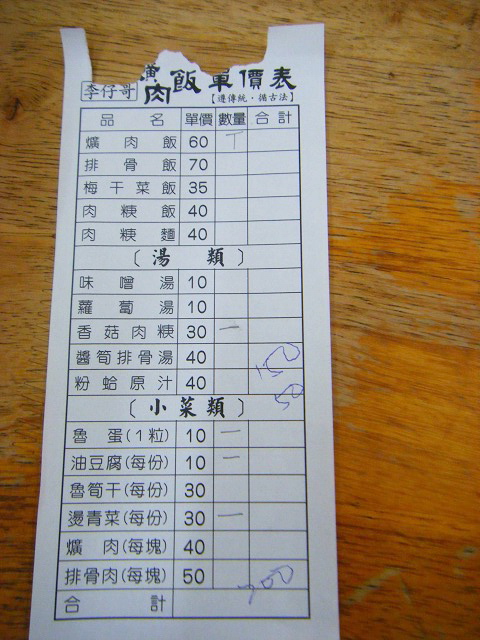 李仔哥 爌肉飯單價表
【遵傳統·循古法】
品名 單價 數量 合計
爌肉飯 60 T
排骨飯 70
梅干菜飯 35
肉粳飯 40
肉粳麵 40
〔湯類〕
味噌湯 10
蘿蔔湯 10
香菇肉粳 30 一
醬筍排骨湯 40 150
粉蛤原汁 40 50
〔小菜類〕
魯蛋(1粒) 10 一
油豆腐(每份) 10 一
魯筍干(每份) 30
燙青菜(每份) 30 一
爌肉(每塊) 40
排骨肉(每塊) 50 200
合計